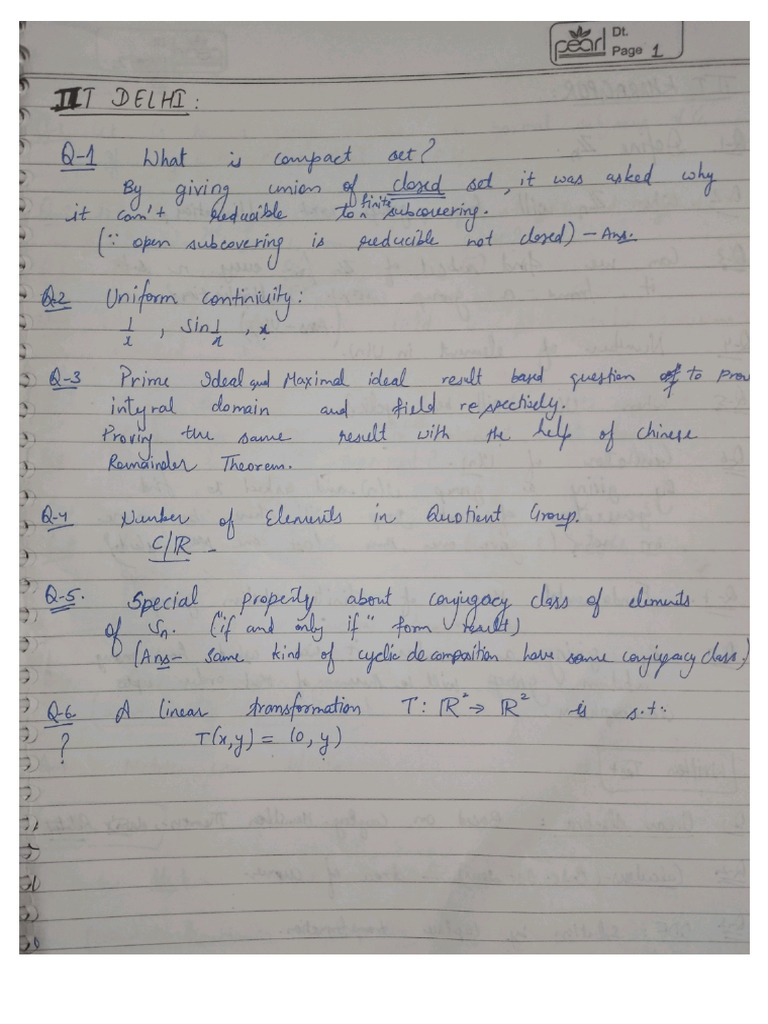 pearl Dt.
Page 1
IIT DELHI:
Q-1 What is compact set?
By giving union of closed set, it was asked why
it can't reducible to finite subcovering.
(∵ open subcovering is reducible not closed) - Ans.
Q-2 Uniform continiuity:
1/x , Sin 1/x , x
Q-3 Prime Ideal and Maximal ideal result based question to prov
integral domain and field respectisely.
Proving the same result with the help of Chinese
Remainder Theorem.
Q-4 Number of Elements in Quotient Group.
C/R -
Q-5. Special property about conjugacy class of elements
of Sn. ("if and only if" form result)
(Ans- same kind of cyclic decomposition have same conjugacy class.)
Q-6 A linear transformation T: R² → R² is s.t:
? T(x,y) = (0, y)